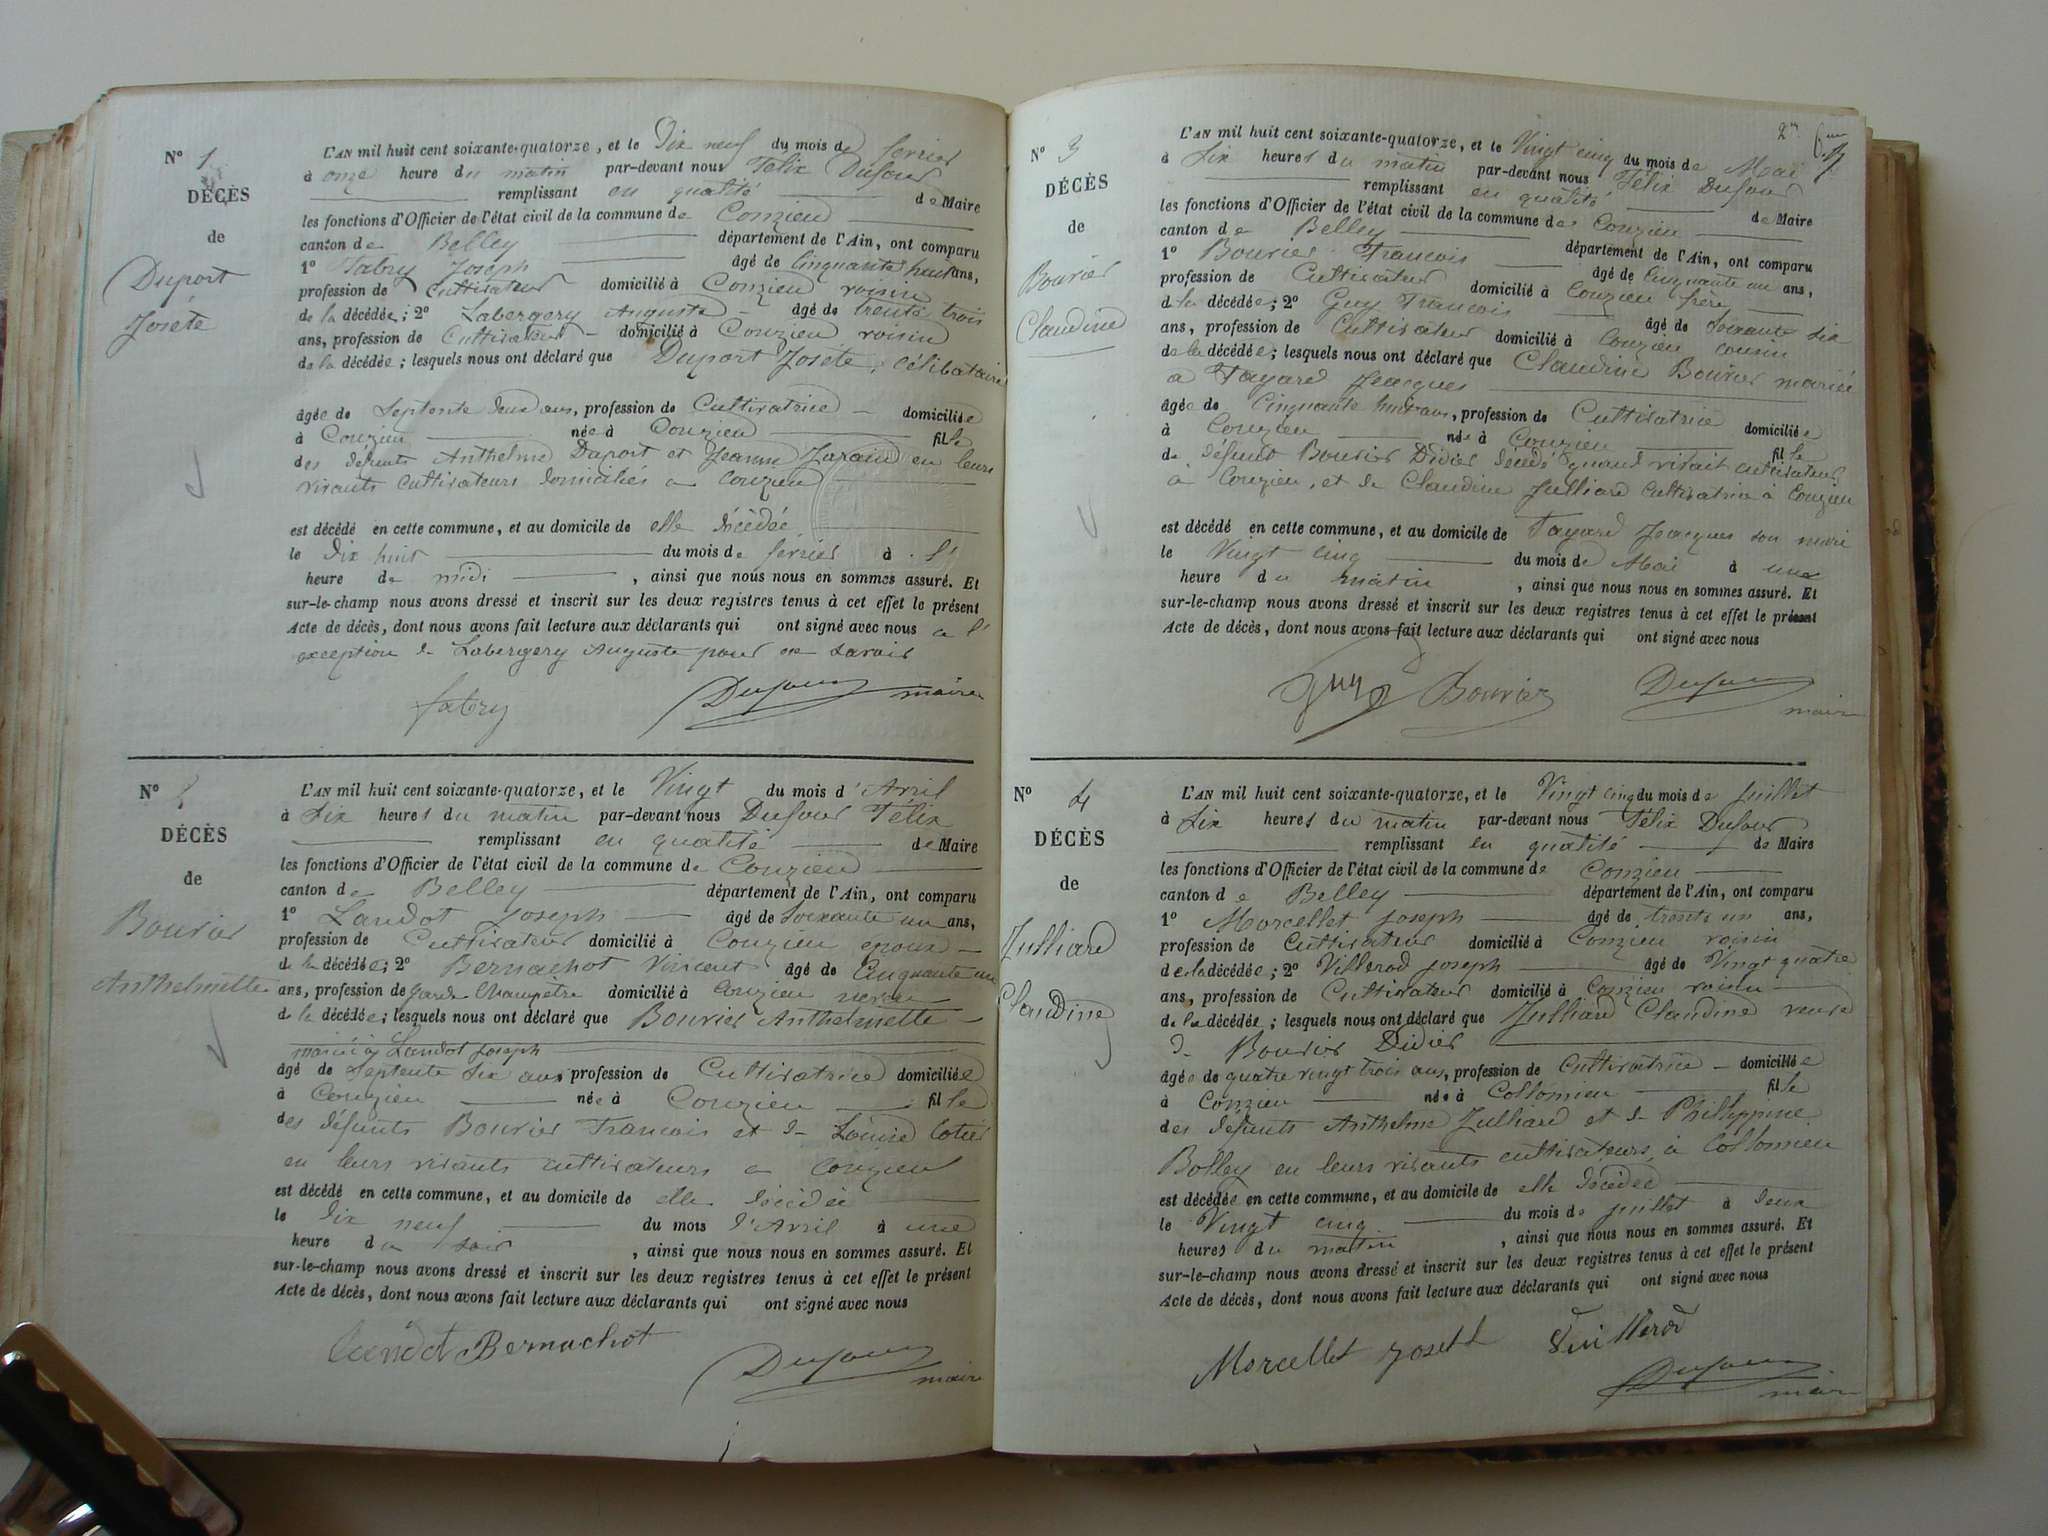 N° 1
DÉCÈS
de
Duport
Joséte
L'AN mil huit cent soixante-quatorze, et le Dix neuf du mois de février
à onze heure du matin par-devant nous Félix Dufour
remplissant en qualité de Maire
les fonctions d'Officier de l'état civil de la commune de Conzieu
canton de Belley département de l'Ain, ont comparu
1° Fabry Joseph âgé de Cinquante huit ans,
profession de Cultivateur domicilié à Conzieu voisin
de la décédée; 2° Labergery Auguste âgé de trente trois
ans, profession de Cultivateur domicilié à Conzieu voisin
de la décédée; lesquels nous ont déclaré que Duport Joséte, Célibataire
âgée de Septente deux ans, profession de Cultivatrice domiciliée
à Conzieu née à Conzieu fille
des défunts Anthelme Duport et Jeanne en leurs
vivants cultivateurs domiciliés a Conzieu
est décédé en cette commune, et au domicile de elle décédée
le dix huit du mois de février à l'
heure de midi, ainsi que nous nous en sommes assuré. Et
sur-le-champ nous avons dressé et inscrit sur les deux registres tenus à cet effet le présent
Acte de décès, dont nous avons fait lecture aux déclarants qui ont signé avec nous a l'
exception de Labergery Auguste pour ne savoir
fabry Dufour maire
N° 2
DÉCÈS
de
Bouvier
Anthelmette
L'AN mil huit cent soixante-quatorze, et le Vingt du mois d'Avril
à six heures du matin par-devant nous Dufour Félix
remplissant en qualité de Maire
les fonctions d'Officier de l'état civil de la commune de Conzieu
canton de Belley département de l'Ain, ont comparu
1° Landot Joseph âgé de Soixante un ans,
profession de Cultivateur domicilié à Conzieu epoux
de la décédée; 2° Bernachot Vincent âgé de Cinquante un
ans, profession de garde Champetre domicilié à Conzieu neveu
de la décédée; lesquels nous ont déclaré que Bouvier Anthelmette
mariée à Landot Joseph
âgé de Septente six ans profession de Cultivatrice domiciliée
à Conzieu née à Conzieu fille
des défunts Bouvier Francois et de Louise
en leurs vivants cultivateurs a Conzieu
est décédé en cette commune, et au domicile de elle décédée
le dix neuf du mois d'Avril à une
heure du soir, ainsi que nous nous en sommes assuré. Et
sur-le-champ nous avons dressé et inscrit sur les deux registres tenus à cet effet le présent
Acte de décès, dont nous avons fait lecture aux déclarants qui ont signé avec nous
Landot Bernachot
Dufour maire
N° 3
DÉCÈS
de
Bouvier
Claudine
L'AN mil huit cent soixante-quatorze, et le Vingt cinq du mois de Mai
à six heures du matin par-devant nous Félix Dufour
remplissant en qualité de Maire
les fonctions d'Officier de l'état civil de la commune de Conzieu
canton de Belley département de l'Ain, ont comparu
1° Bouvier Francois âgé de Cinquante un ans,
profession de Cultivateur domicilié à Conzieu frère
de la décédée; 2° Guy Francois âgé de Soixante six
ans, profession de Cultivateur domicilié à Conzieu cousin
de la décédée; lesquels nous ont déclaré que Claudine Bouvier mariée
a Tayard Jeacques
âgée de Cinquante huit ans, profession de Cultivatrice domiciliée
à Conzieu née à Conzieu fille
de défunt Bouvier Didier décédé quand vivait cultivateur
à Conzieu, et de Claudine Julliard Cultivatrice à Conzieu
est décédé en cette commune, et au domicile de Tayard Jeacques son mari
le Vingt cinq du mois de Mai à une
heure du matin, ainsi que nous nous en sommes assuré. Et
sur-le-champ nous avons dressé et inscrit sur les deux registres tenus à cet effet le présent
Acte de décès, dont nous avons fait lecture aux déclarants qui ont signé avec nous
Guy Bouvier Dufour
maire
N° 4
DÉCÈS
de
Julliard
Claudine
L'AN mil huit cent soixante-quatorze, et le Vingt cinq du mois de juillet
à six heures du matin par-devant nous Félix Dufour
remplissant en qualité de Maire
les fonctions d'Officier de l'état civil de la commune de Conzieu
canton de Belley département de l'Ain, ont comparu
1° Morcellet Joseph âgé de trente un ans,
profession de Cultivateur domicilié à Conzieu voisin
de la décédée; 2° Villerod Joseph âgé de Vingt quatre
ans, profession de Cultivateur domicilié à Conzieu voisin
de la décédée; lesquels nous ont déclaré que Julliard Claudine veuve
de Bouvier Didier
âgée de quatre vingt trois ans, profession de Cultivatrice domiciliée
à Conzieu née à Collomieu fille
des défunts Anthelme Julliard et de Philippine
Bolley en leurs vivants cultivateurs à Collomieu
est décédée en cette commune, et au domicile de elle décédée
le Vingt cinq du mois de juillet à deux
heures du matin, ainsi que nous nous en sommes assuré. Et
sur-le-champ nous avons dressé et inscrit sur les deux registres tenus à cet effet le présent
Acte de décès, dont nous avons fait lecture aux déclarants qui ont signé avec nous
Morcellet Joseph Vuillerod
Dufour
maire